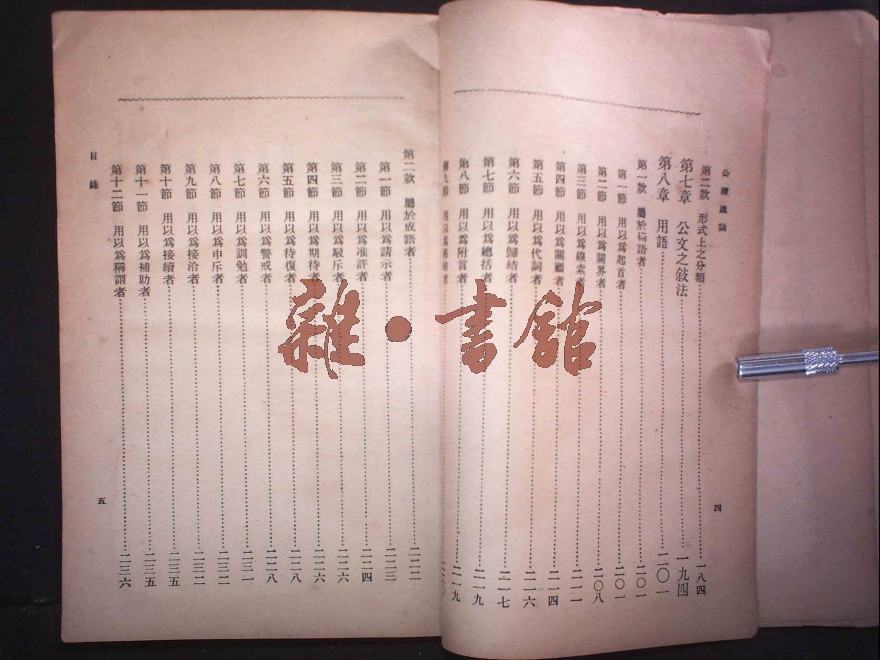 公牘通論
第二款 形式上之分類 一八四
第七章 公文之敍法 一九四
第八章 用語 二〇一
第一款 屬於 語者 二〇一
第一節 用以爲起首者 二〇一
第二節 用以爲關界者 二〇八
第三節 用以爲線索者 二一一
第四節 用以爲關顧者 二一四
第五節 用以爲代詞者 二一六
第六節 用以爲歸結者 二一七
第七節 用以爲總括者 二一九
第八節 用以爲附言者 二一九
第九節 用以爲 者
四
第二款 屬於成語者 二二二
第一節 用以爲請示者 二二三
第二節 用以爲准許者 二二四
第三節 用以爲駁斥者 二二六
第四節 用以爲期待者 二二六
第五節 用以爲待復者 二二八
第六節 用以爲警戒者 二二八
第七節 用以爲訓勉者 二三一
第八節 用以爲申斥者 二三二
第九節 用以爲接洽者 二三二
第十節 用以爲接續者 二三五
第十一節 用以爲補助者 二三五
第十二節 用以爲稱謂者 二三六
目錄
五
雜·書館